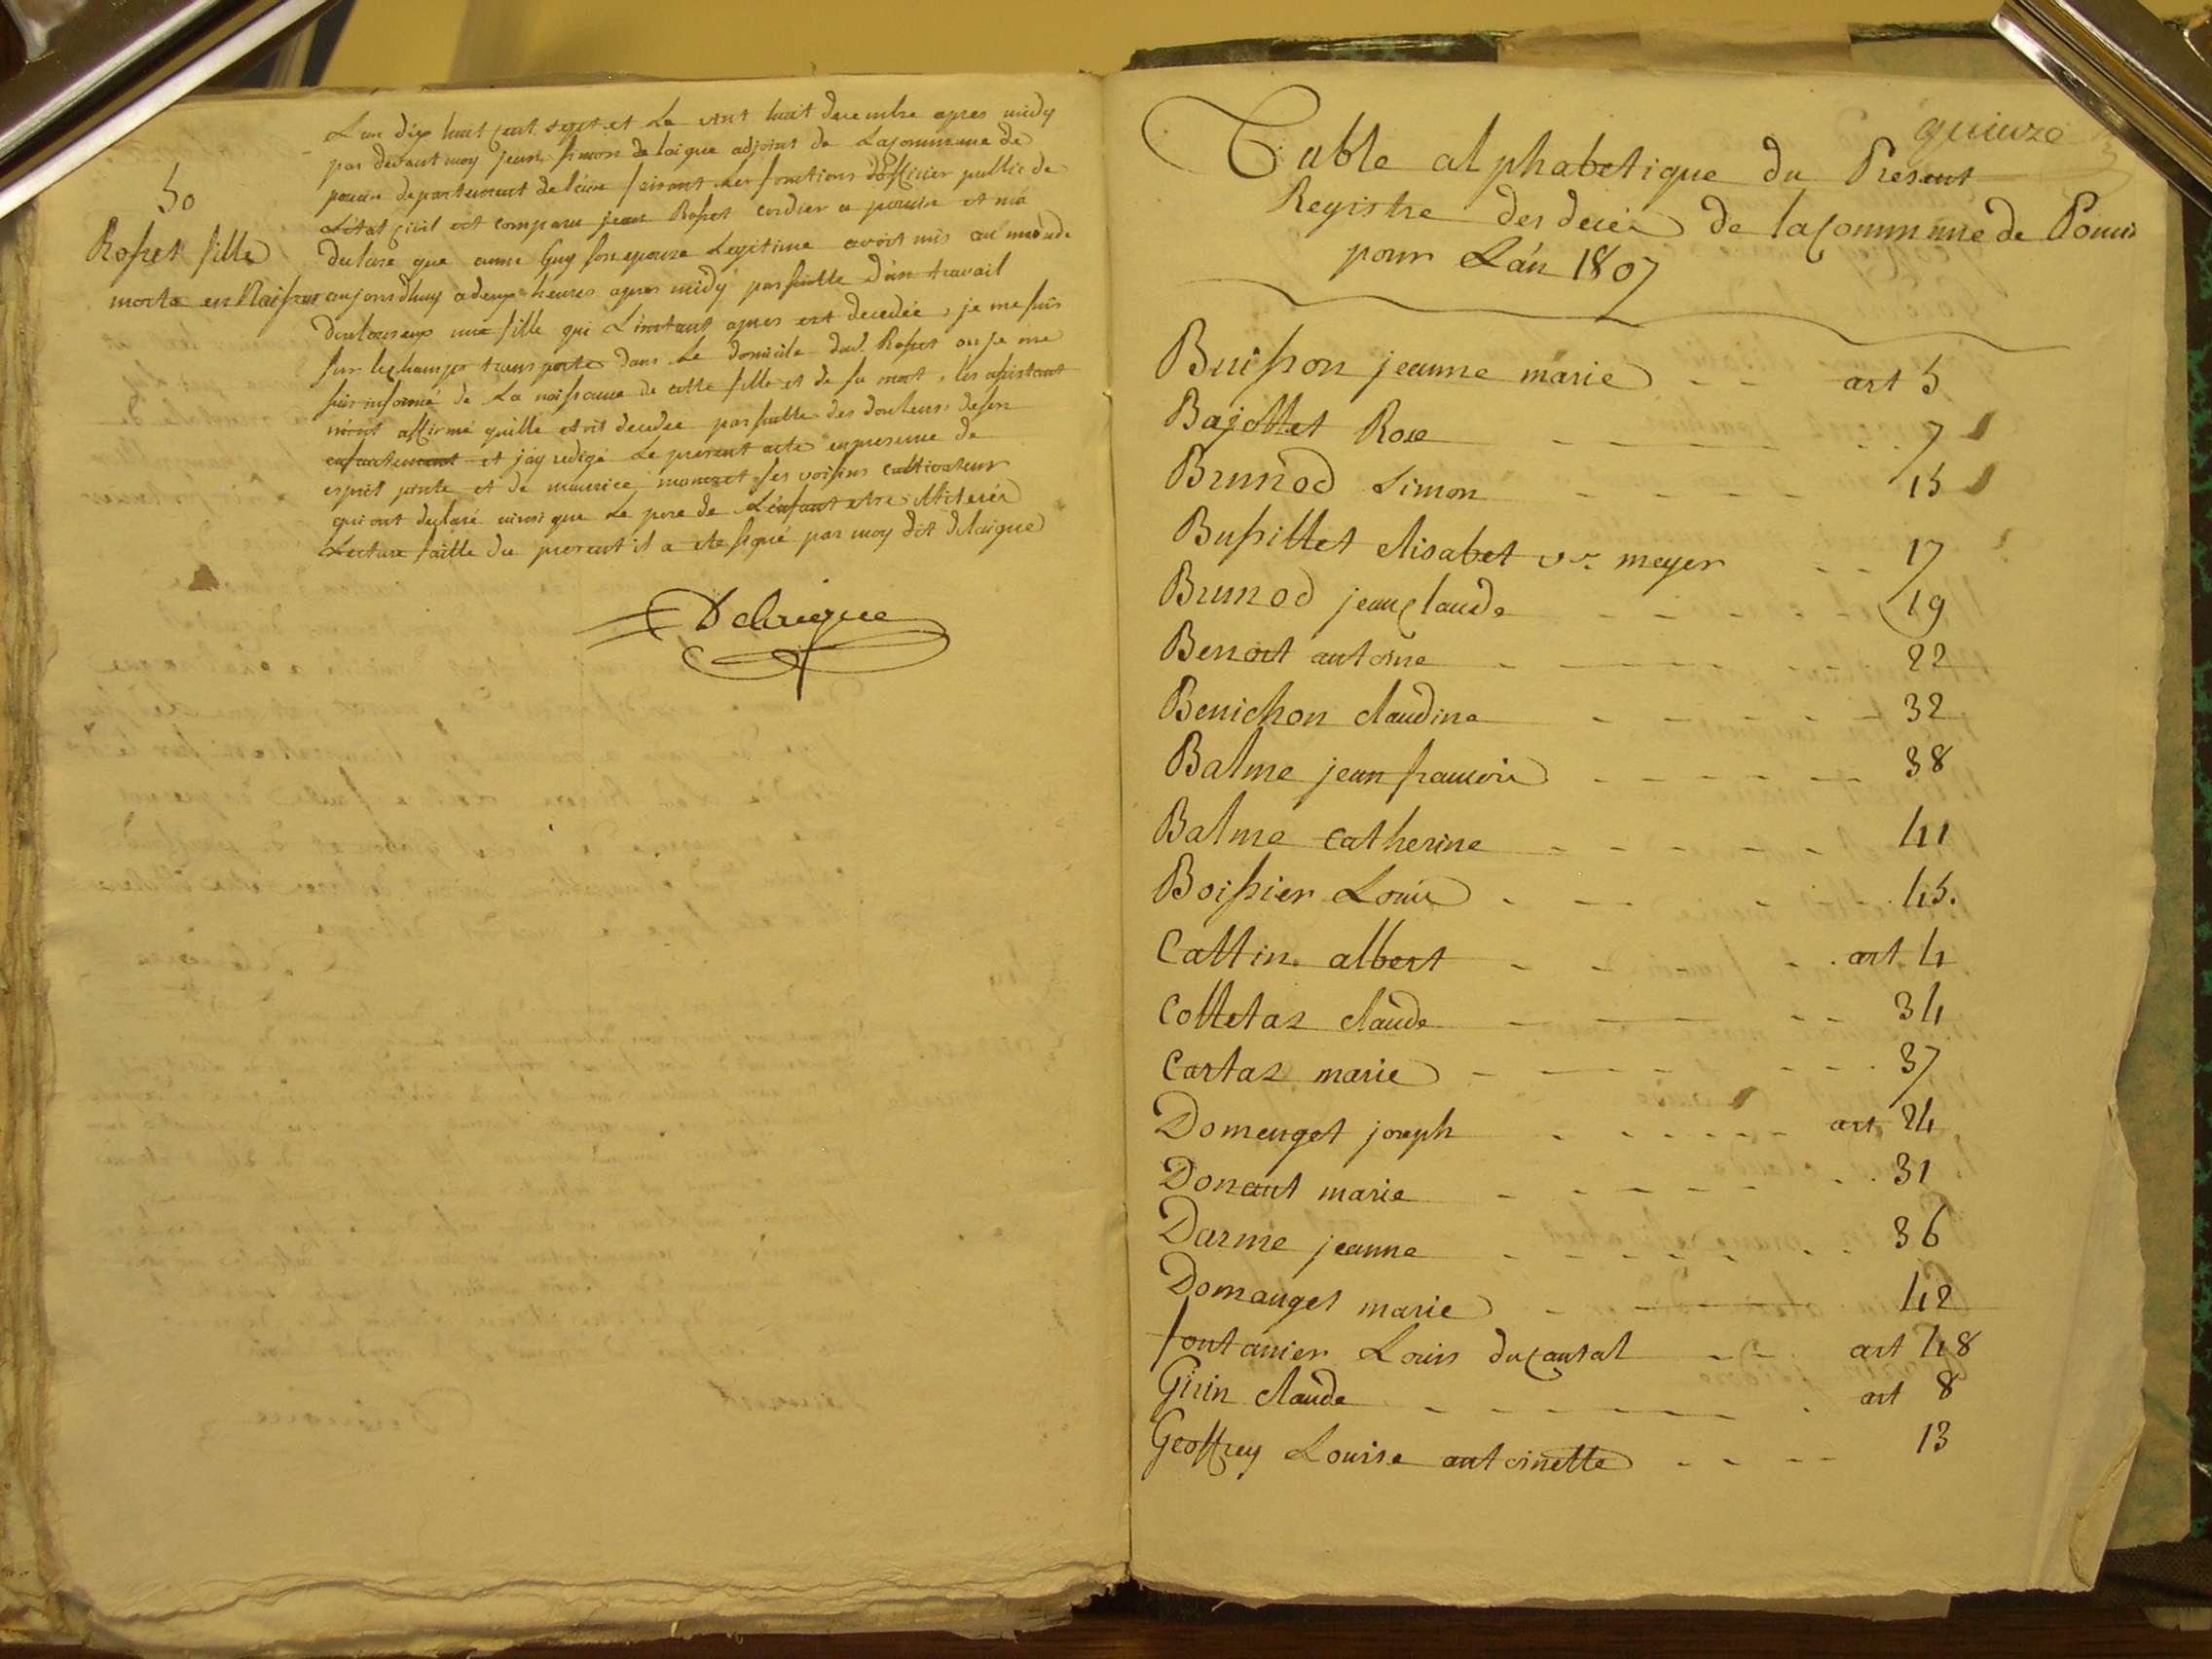 50
Rosset fille
morte en Naissan
L'an dix huit cent sept et Le vint huit decembre apres midy
par devant moy jean simon delaigue adjoint de La commune de
poncin departement de l'ain faisant Les fonctions d'officier public de
L'état civil est comparu jean Rosset cordier a poncin et m'a
declaré que anne Guy son epouse Legitime avoit mis au monde
aujourdhuy a deux heures apres midy par suitte d'un travail
douloureux une fille qui L'instant apres est decedée, je me suis
sur le champs transporté dans Le domicile dud. Rosset ou je me
suis informé de La naissance de cette fille et de sa mort, les assistant
m'ont affirmé quille etoit decedee par suitte des douleurs de son
enfantement et j'ay redigé Le present acte en presence de
esprit et de maurice ses voisins cultivateur
qui ont declaré ainsi que Le pere de L'enfant etre illiterés
Lecture faitte du present il a eté signé par moy dit delaigue
Delaigue
quinze
Table alphabetique du Present
Registre des decés de la commune de Poncin
pour L'an 1807
Buisson jeanne marie - - art 5
Bajollet Rose - - - - - - 7
Brunod simon - - - - - 15
Bussillet elisabet v.e meyer - - 17
Brunod jean claude - - - - - 19
Benoit antoine - - - - - 22
Benichon claudine - - - - - 32
Balme jean francois - - - - - 38
Balme catherine - - - - - - 41
Boissier Louis - - - - 45.
Cattin albert - - - - art 4
Colletaz claude - - - - - 34
Cartaz marie - - - - - 37
Domenget joseph - - - - - art 24
Donaut marie - - - - - - 31
Darme jeanne - - - - - - 36
Domanget marie - - - 42
fontanier Louis du cantal - - art 48
Girin claude - - - - - - art 8
Geoffrey Louise antoinette - - - - 13